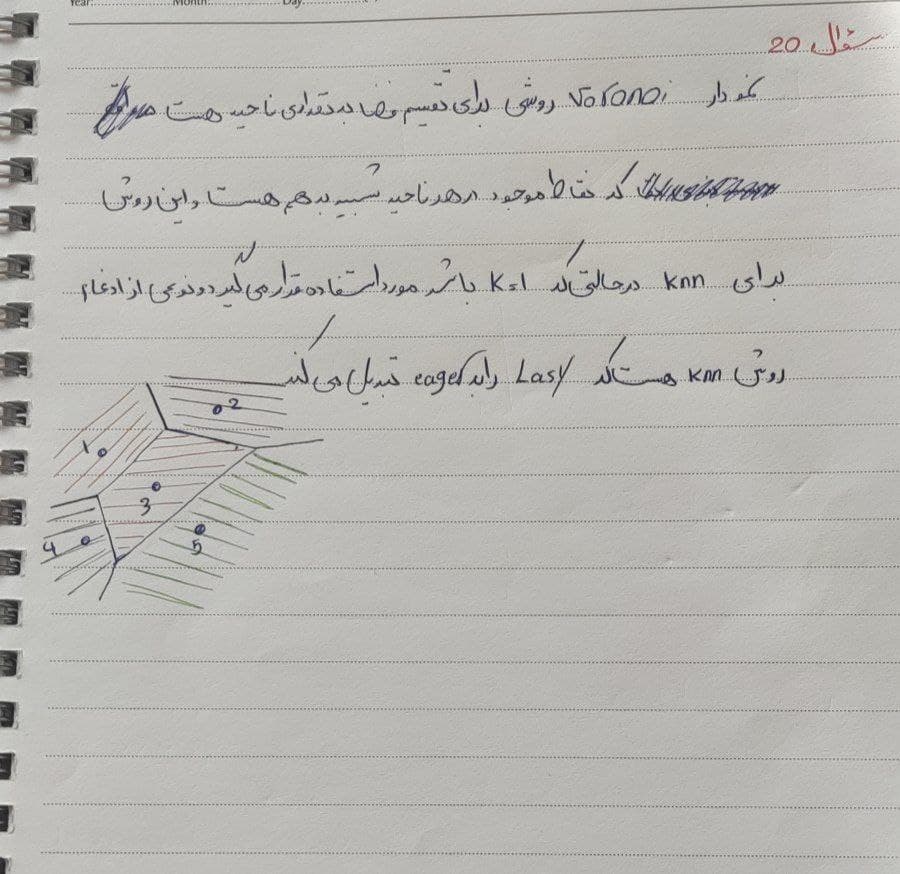 Year: Month: Day:
سؤال 20
نمودار Voronoi روشی برای تقسیم فضا به تعدادی ناحیه هست
که نقاط موجود در هر ناحیه شبیه به هم هست و این روش
برای knn در حالتی که K=1 باشد مورد استفاده قرار می گیرد و نوعی از ادغام
روش knn هست که Lasy را به eager تبدیل می کند
2
1
3
4
5